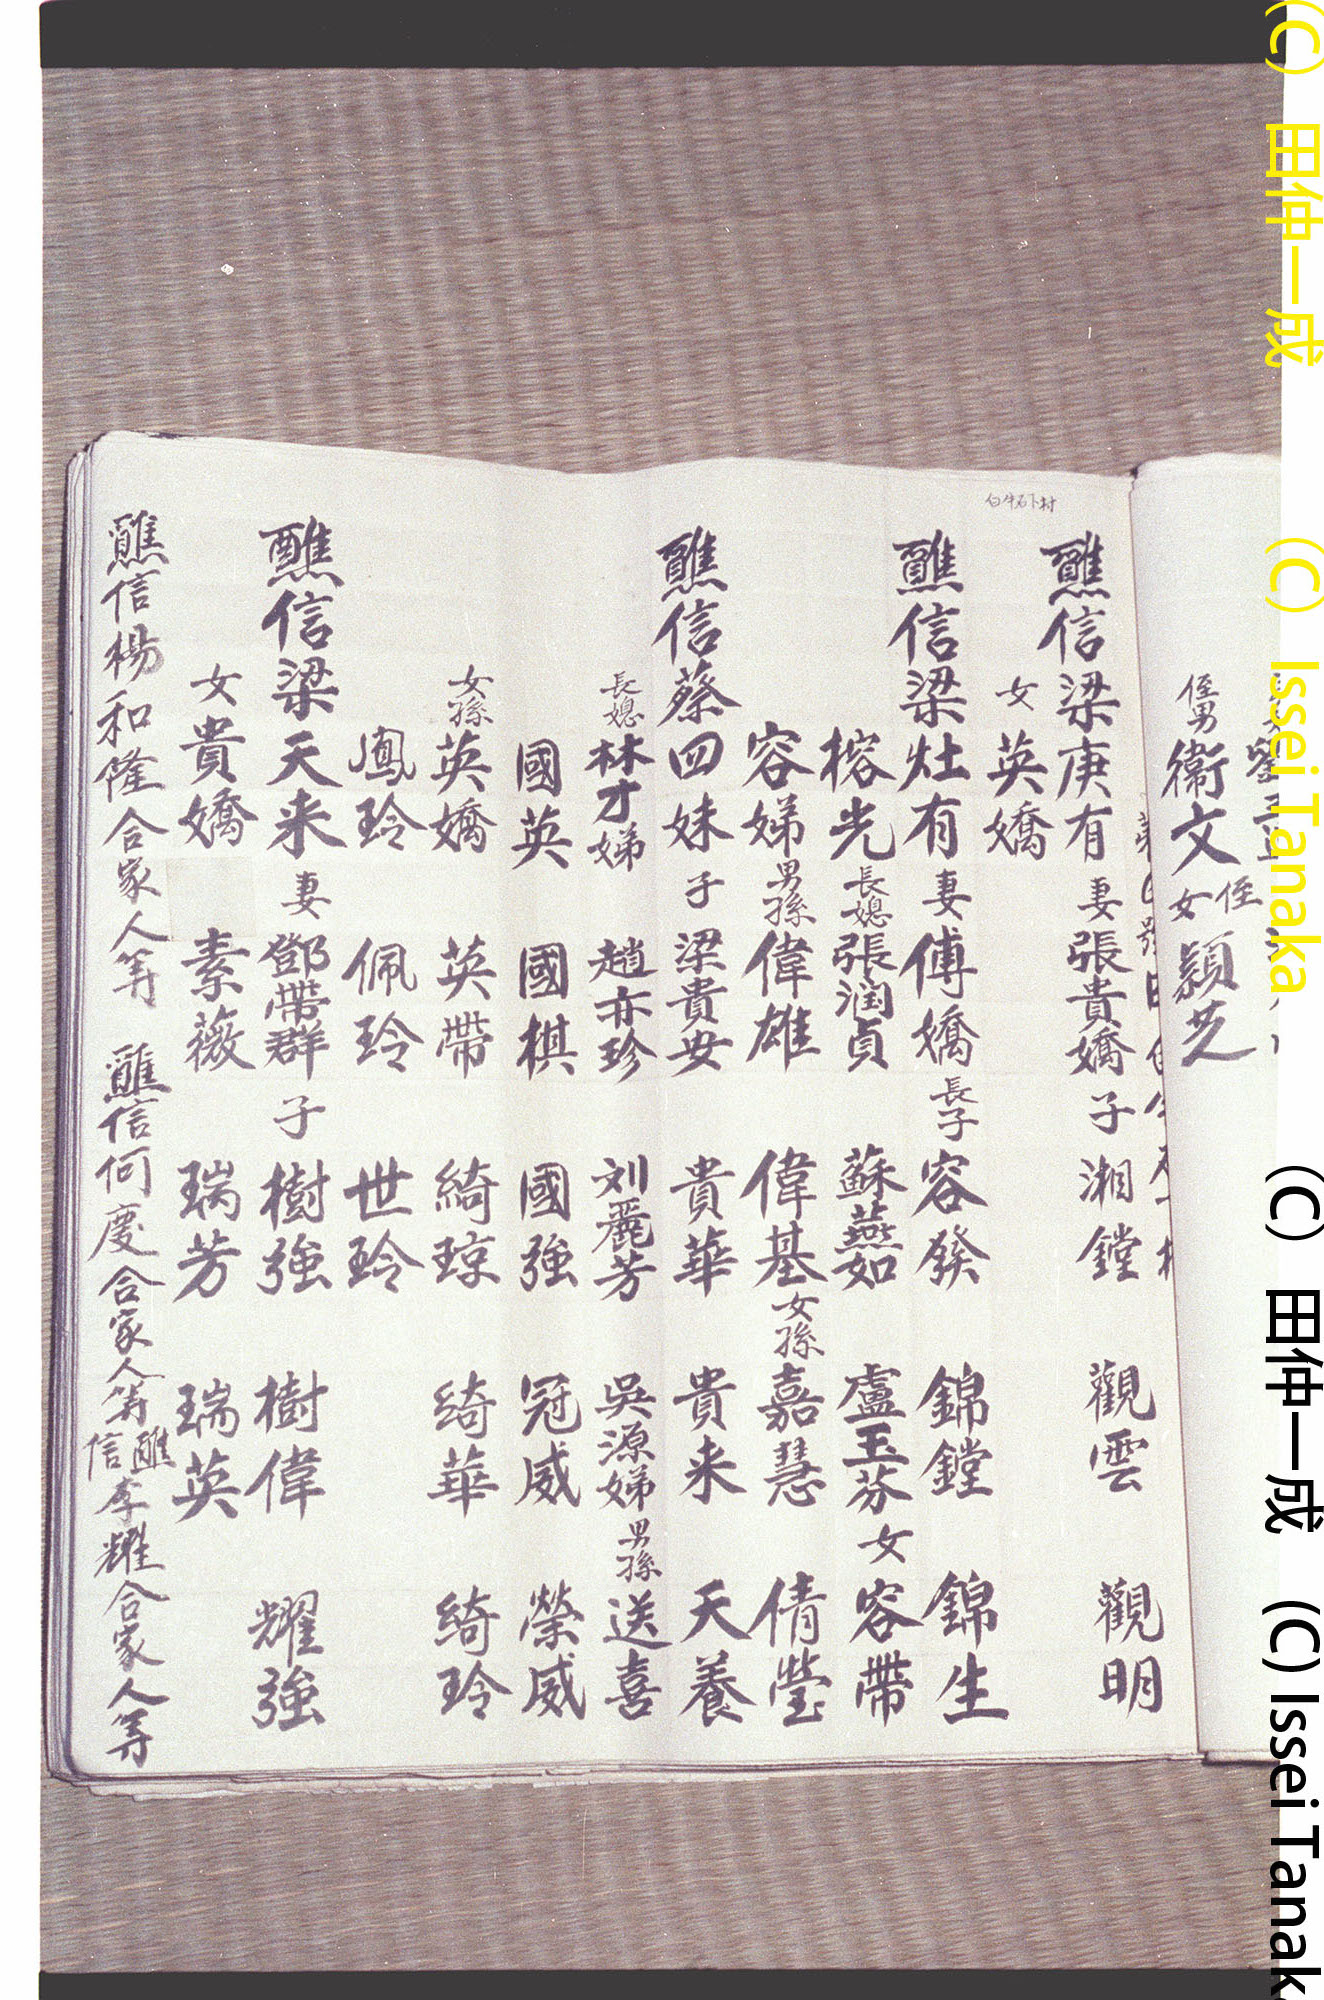 侄男 衞文 女 侄 穎芝
白牛石下村
醮信梁庚有 妻 張貴嬌 子 湘鏜 觀雲 觀明
女 英嬌
醮信梁灶有 妻 傅嬌 長子 容發 錦鏜 錦生
榕光 長媳 張潤貞 蘇燕如 盧玉芬 女 容帶
容娣 男孫 偉雄 偉基 女孫 嘉慧 倩瑩
醮信蔡四妹 子 梁貴安 貴華 貴来 天養
長媳 林才娣 趙亦珍 刘麗芳 吳源娣 男孫 送喜
國英 國棋 國強 冠威 榮威
女孫 英嬌 英帶 綺琼 綺華 綺玲
鳳玲 佩玲 世玲
醮信梁天来 妻 鄧帶群 子 樹強 樹偉 耀強
女 貴嬌 素薇 瑞芳 瑞英
醮信楊和隆合家人等 醮信何慶合家人等 醮信李耀合家人等
(C) 田仲一成 (C) Issei Tanaka
(C) 田仲一成 (C) Issei Tanak